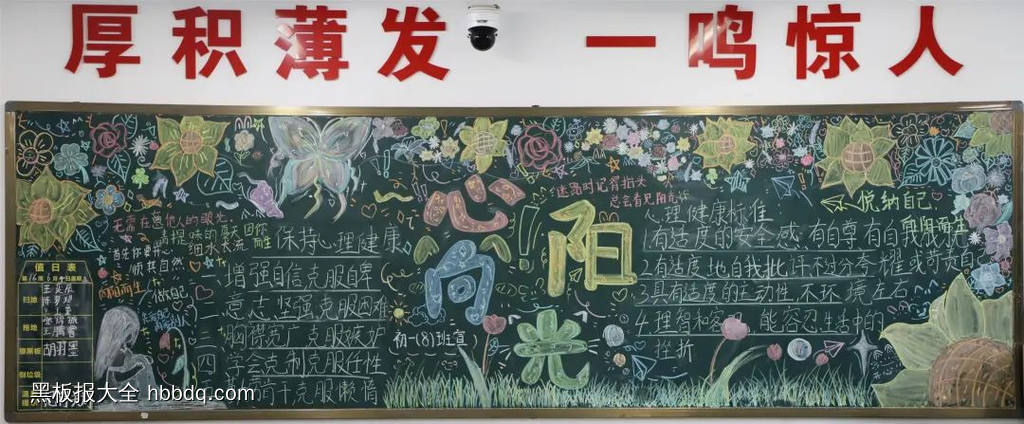 厚积薄发 一鸣惊人
心向阳光
迷路时记得抬头
总会看见阳光
无需在意他人的眼光
顺其自然
做自己
保持心理健康
增强自信克服自卑
意志坚强克服困难
胸襟宽广克服嫉妒
学会克制克服任性
克服懒惰
初一(8)班宣
心理健康标准
1.有适度的安全感,有自尊
2.有适度地自我批评不过分夸耀
3.具有适度的主动性,不环境左右
4.理智和客 能容忍生活中的
挫折
悦纳自己
向阳而生
值日表
扫地
拖地
擦黑板
倒垃圾
胡羽墨
黑板报大全 hbbdq.com